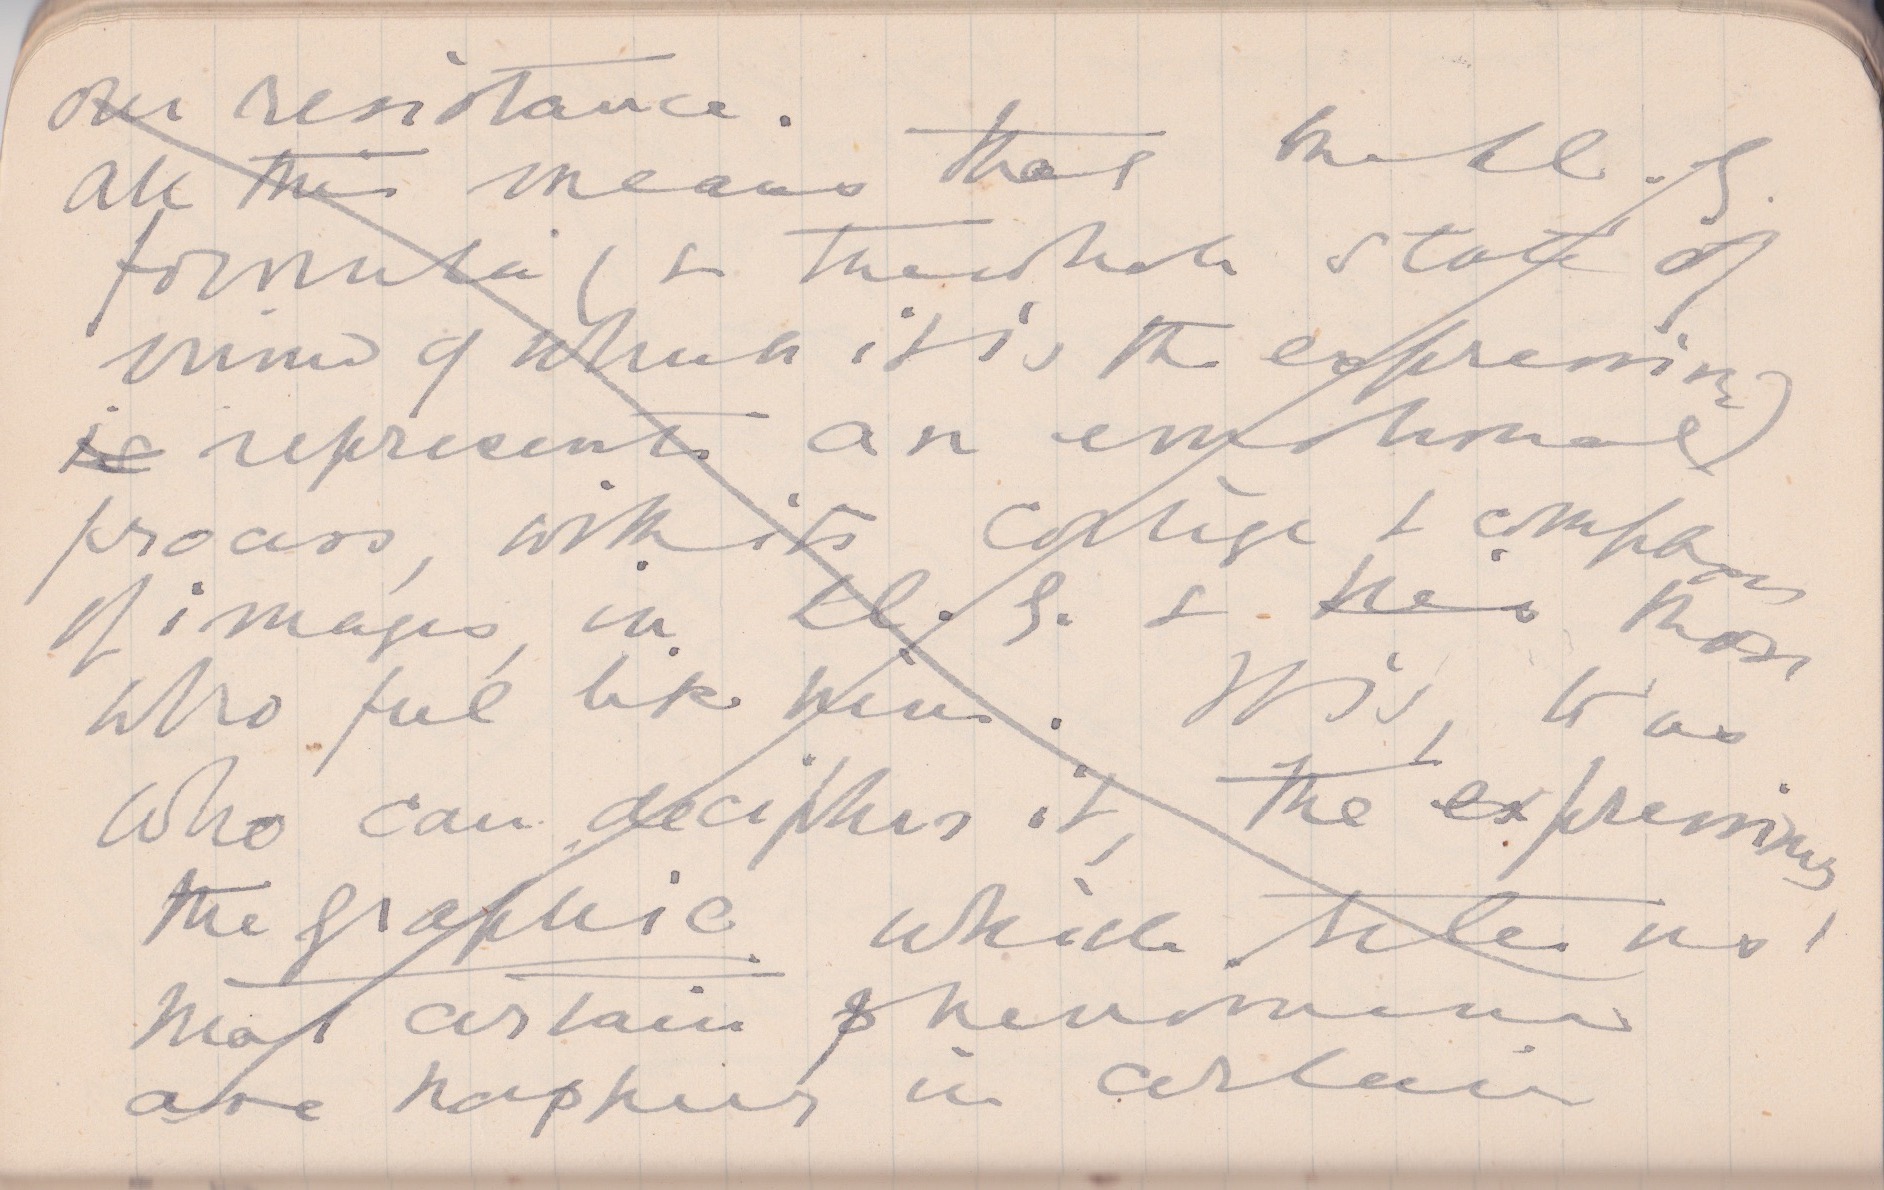 our resistance.
All this means that the El. G.
formula (& the whole state of
mind of which it is the expression)
is represents an emotional
process, with its cortège & compass
of images, in El. G. & his those
who feel like him. It is, to us
who can decipher it, the expression,
the graphic which tells us
that certain phenomena
are happening in certain